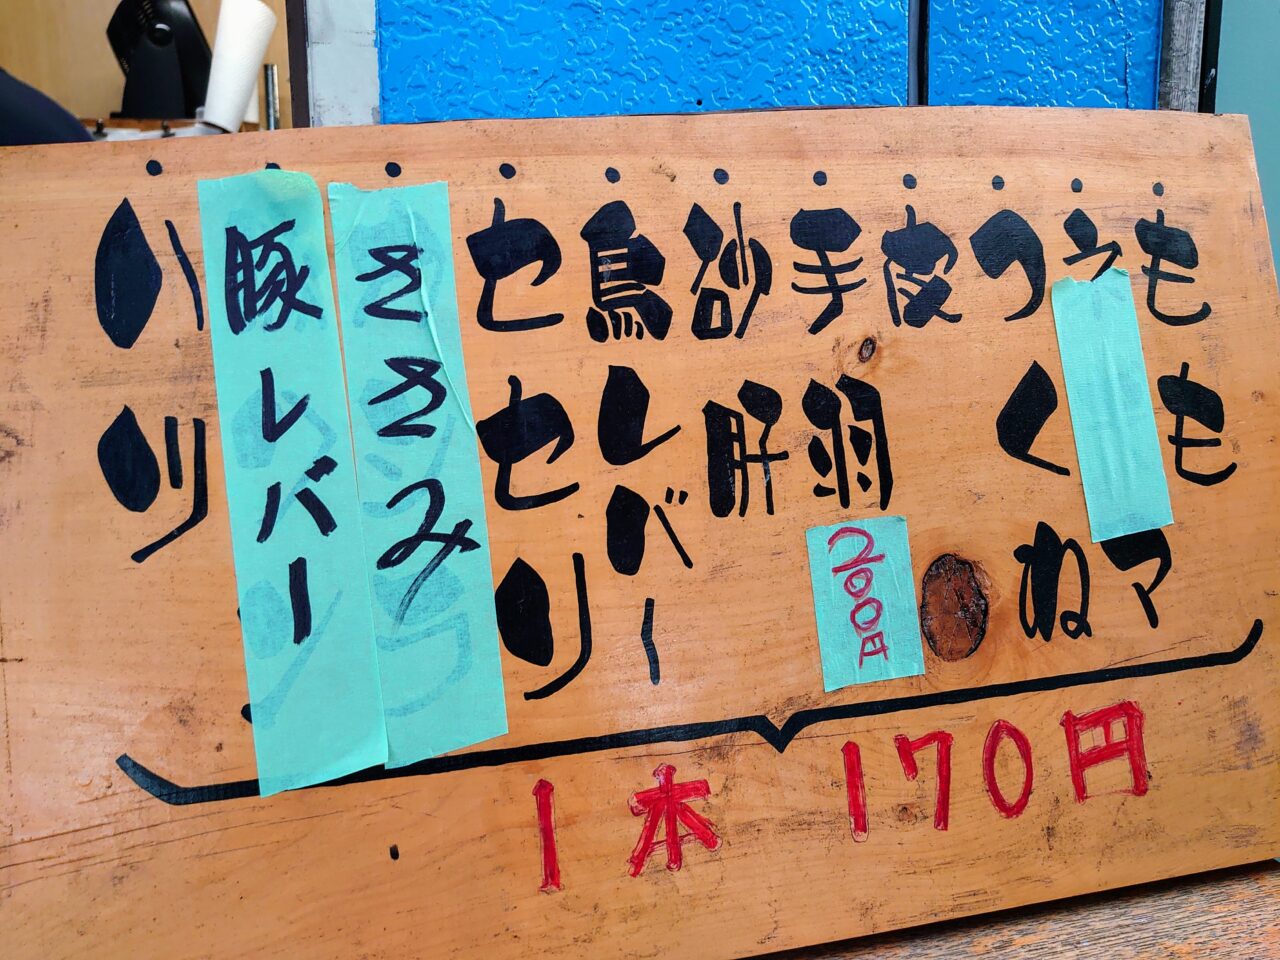 ・もも
・つくね
・皮
・手羽
200円
・砂肝
・鳥レバー
・セセリ
・ささみ
・豚レバー
・ハツ
1本 170円